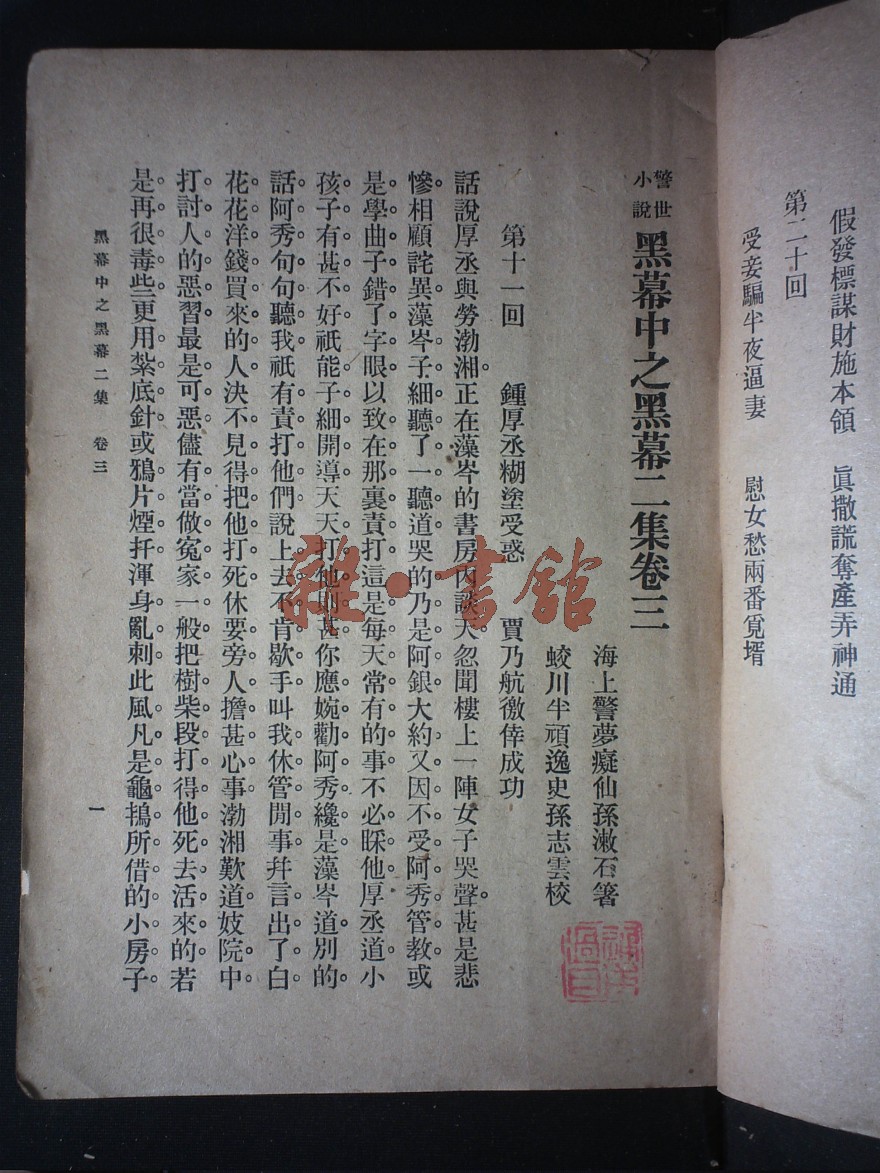 假發標謀財施本領　眞撒謊奪產弄神通
第二十回
受妾騙半夜逼妻　慰女愁兩番覓壻
警世小說
黑幕中之黑幕二集卷三
海上警夢癡仙孫漱石箸
蛟川半頑逸史孫志雲校
第十一回　鍾厚丞糊塗受惑　賈乃航徼倖成功
話說厚丞與勞渤湘。正在藻岑的書房內談天。忽聞樓上一陣女子哭聲。甚是悲
慘。相顧詫異。藻岑子細聽了一聽道。哭的乃是阿銀。大約又因不受阿秀管教。或
是學曲子錯了字眼。以致在那裏責打。這是每天常有的事。不必睬他。厚丞道。小
孩子有甚不好。祇能子細開導。天天打他則甚。你應婉勸阿秀纔是。藻岑道。別的
話阿秀句句聽我。祇有責打他們。說上去不肯歇手。叫我休管閒事。幷言出了白
花花洋錢買來的人。決不見得把他打死。休要旁人擔甚心事。渤湘歎道。妓院中
打討人的惡習。最是可惡。儘有當做冤家一般。把樹柴段打得他死去活來的。若
是再很毒些。更用紮底針或鴉片煙扦渾身亂刺。此風凡是龜鴇所借的小房子
黑幕中之黑幕二集　卷三
一
雜·書館